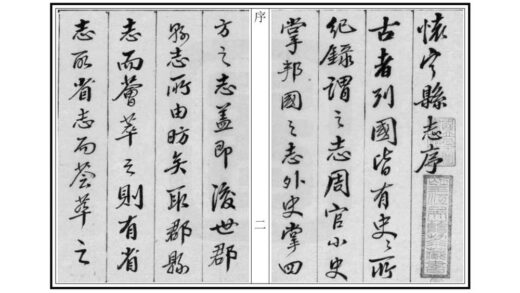 懷宁縣志序
古者列國皆有史之所
紀錄謂之志周官小史
掌邦國之志外史掌四
序
二
方之志蓋即後世郡
縣志所由昉矣取郡縣
志而薈萃之則有省
志取省志而薈萃之